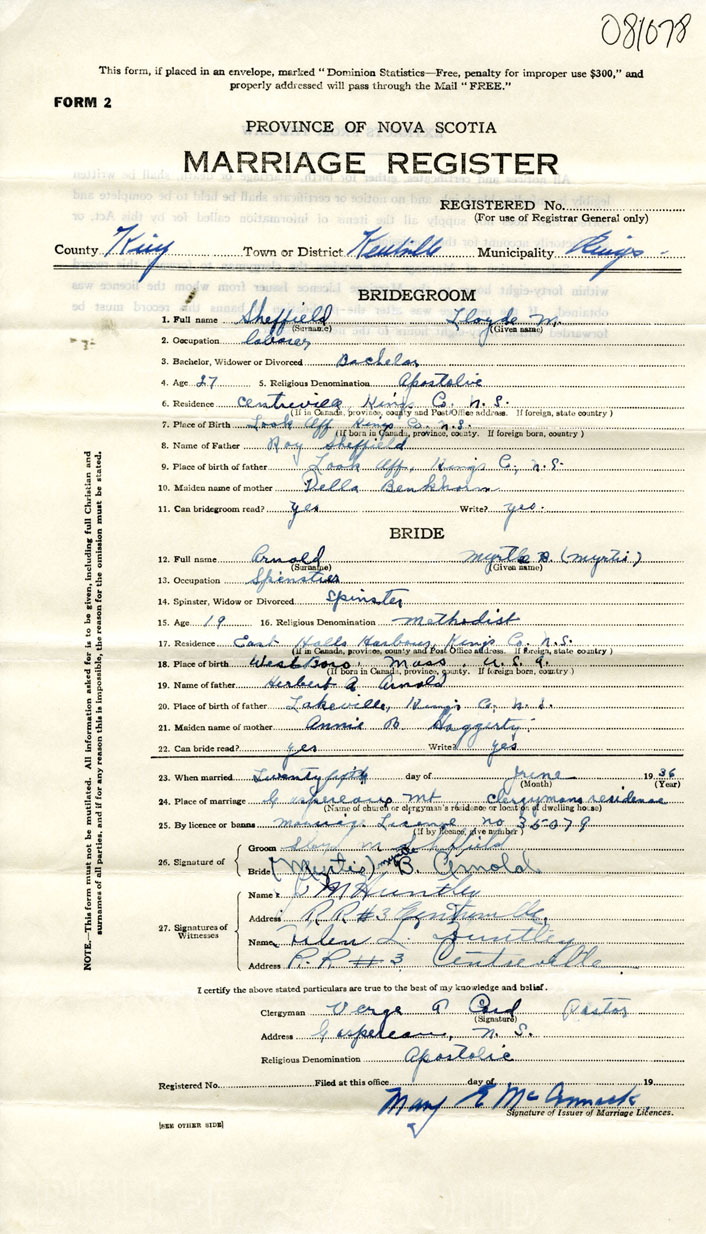 081078
This form, if placed in an envelope, marked "Dominion Statistics—Free, penalty for improper use $300," and
properly addressed will pass through the Mail "FREE."
FORM 2
PROVINCE OF NOVA SCOTIA
MARRIAGE REGISTER
REGISTERED No.
(For use of Registrar General only)
County King Town or District Kentville Municipality Kings
BRIDEGROOM
1. Full name Sheffield Lloyde M.
(Surname) (Given name)
2. Occupation laborer
3. Bachelor, Widower or Divorced Bachelor
4. Age 27 5. Religious Denomination Apostolic
6. Residence Centreville Kings Co. N.S.
(If in Canada, province, county and Post Office address. If foreign, state country)
7. Place of Birth Look Off Kings Co. N.S.
(If born in Canada, province, county. If foreign born, country)
8. Name of Father Roy Sheffield
9. Place of birth of father Look Off, Kings Co., N.S.
10. Maiden name of mother Della
11. Can bridegroom read? yes Write? yes.
BRIDE
12. Full name Arnold Myrtle B. (Myrtis)
(Surname) (Given name)
13. Occupation Spinster
14. Spinster, Widow or Divorced Spinster
15. Age 19 16. Religious Denomination Methodist
17. Residence East Halls Harbour, Kings Co. N.S.
(If in Canada, province, county and Post Office address. If foreign, state country)
18. Place of birth West Boro, Mass. U.S.A.
(If born in Canada, province, county. If foreign born, country)
19. Name of father Herbert A Arnold
20. Place of birth of father Lakeville, Kings Co., N.S.
21. Maiden name of mother Annie M Haggerty
22. Can bride read? yes Write? yes
23. When married Twenty fifth day of June 1936
(Month) (Year)
24. Place of marriage Gaspereaux Mt Clergymans residence
(Name of church or clergyman's residence or location of dwelling house)
25. By licence or banns Marriage License no 35079
(If by licence, give number)
26. Signature of
Groom Lloyd M Sheffield
Bride (Myrtis) Myrtle B. Arnold
27. Signatures of Witnesses
Name M Huntley
Address R R #3 Centreville
Name Helen L. Huntley
Address R. R # 3 Centreville
I certify the above stated particulars are true to the best of my knowledge and belief.
Clergyman Verge A Pastor
(Signature)
Address Gaspereaux, N. S.
Religious Denomination Apostolic
Registered No. Filed at this office day of 19
Mary E McCormack
Signature of Issuer of Marriage Licences.
[SEE OTHER SIDE]
NOTE.—This form must not be mutilated. All information asked for is to be given, including full Christian and
surnames of all parties, and if for any reason this is impossible, the reason for the omission must be stated.